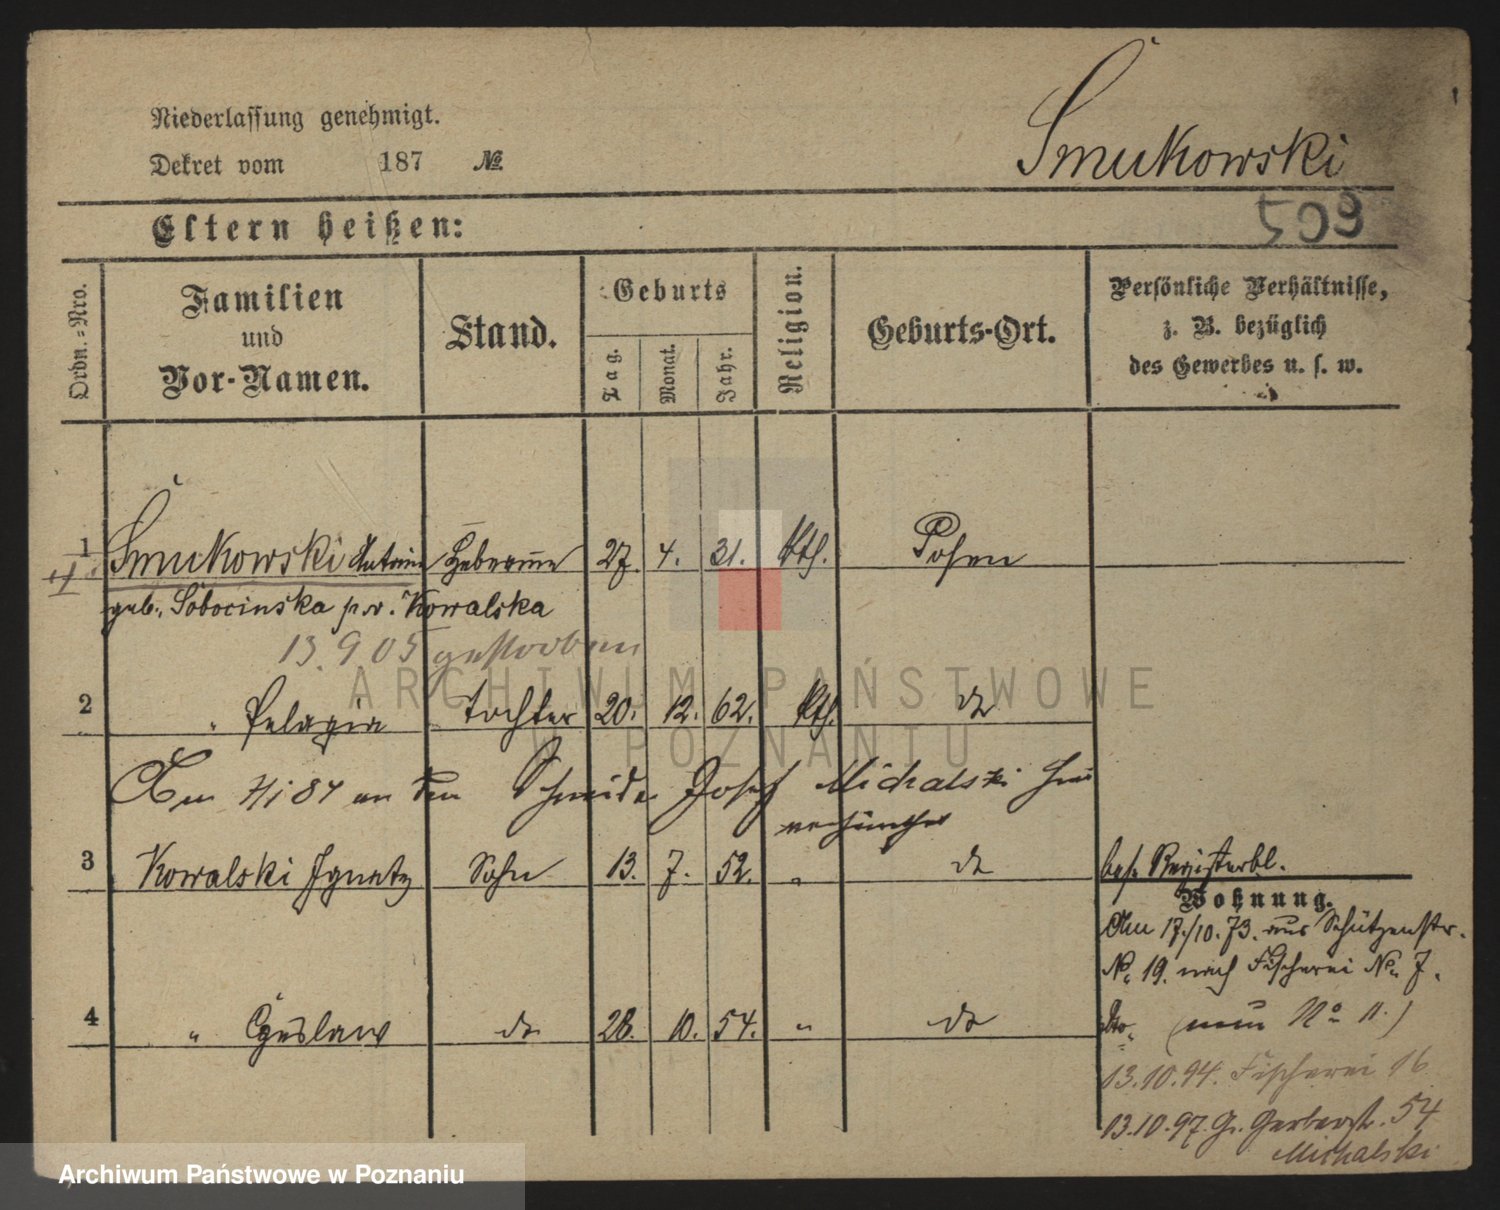 Niederlassung genehmigt.
Dekret vom 187 №
Śmukowski
Eltern heißen:
509
Ordn.-Nro.
Familien
und
Vor-Namen.
Stand.
Geburts
Tag.
Monat.
Jahr.
Religion.
Geburts-Ort.
Persönliche Verhältnisse,
z. B. bezüglich
des Gewerbes u. s. w.
1 Śmukowski Antonie Hebamme 27. 4. 31. kth. Posen
geb. Sobocinska p. v. Kowalska
13.9 05 gestorben
2 " Pelagia Tochter 20. 12. 62. kth. do
Am 84 an den Schneider Josef Michalski hier
3 Kowalski Ignatz Sohn 13. 7. 52. " do
bes. Registerbl.
Wohnung.
Am 17./10. 73. aus Schützenstr.
No. 19. nach Fischerei No. 7.
4 " Czeslaw do 28. 10. 54. " do
dto. (neue No 11.)
13.10.94. Fischerei 16
13.10.97. Gr. Gerberstr. 54
Michalski
ARCHIWUM PAŃSTWOWE
W POZNANIU
Archiwum Państwowe w Poznaniu